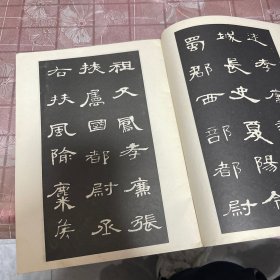 城長史夏陽令
蜀郡西部都尉
祖父鳳孝廉張
掖屬國都尉丞
右扶風隃麋侯